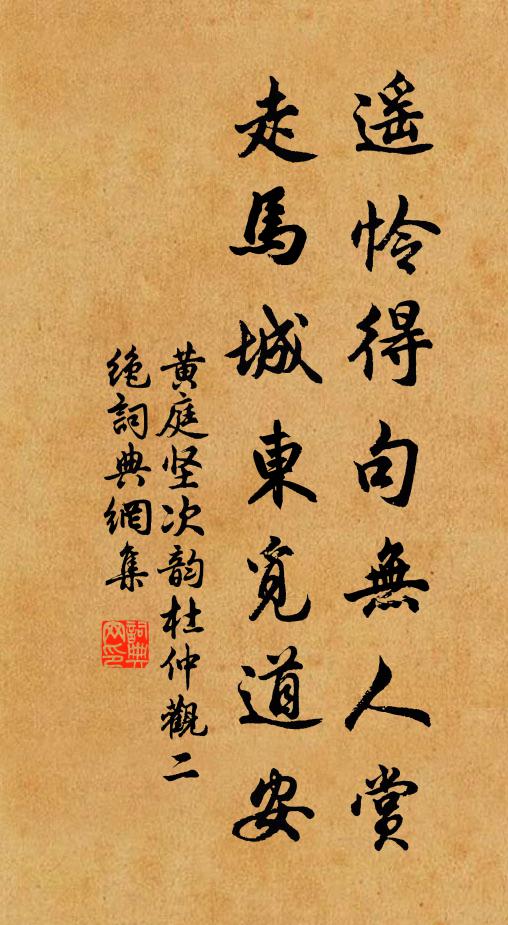 遥怜得句無人赏
走馬城東觅道安
黄庭坚次韵杜仲觀二
绝詞典網集
詞典
网印